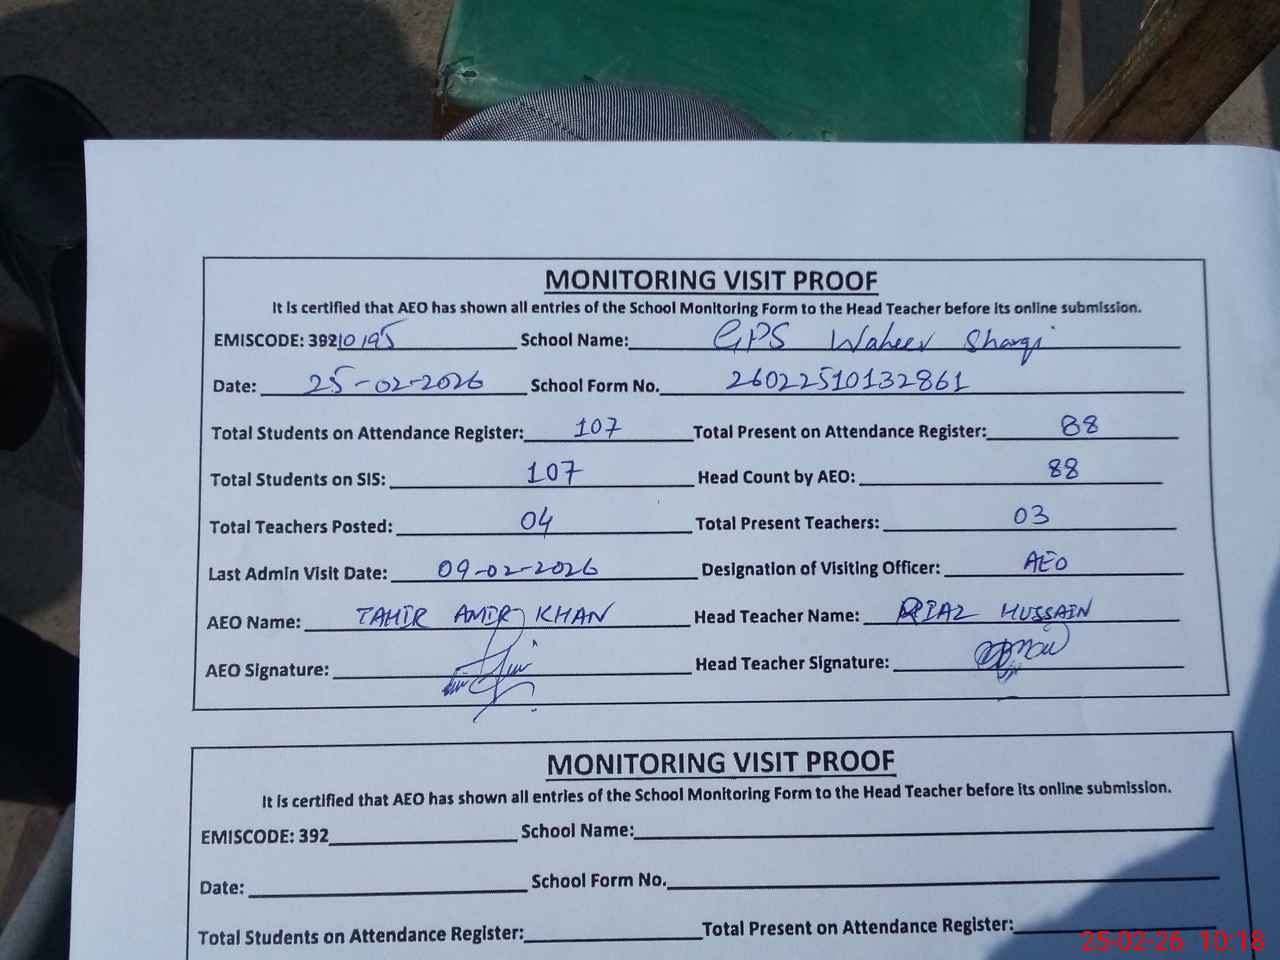 MONITORING VISIT PROOF
It is certified that AEO has shown all entries of the School Monitoring Form to the Head Teacher before its online submission.
EMISCODE: 39210195 School Name: GPS Waheer Sharqi
Date: 25-02-2026 School Form No. 26022510132861
Total Students on Attendance Register: 107 Total Present on Attendance Register: 88
Total Students on SIS: 107 Head Count by AEO: 88
Total Teachers Posted: 04 Total Present Teachers: 03
Last Admin Visit Date: 09-02-2026 Designation of Visiting Officer: AEO
AEO Name: TAHIR AMIR KHAN Head Teacher Name: RIAZ HUSSAIN
AEO Signature: Head Teacher Signature:
MONITORING VISIT PROOF
It is certified that AEO has shown all entries of the School Monitoring Form to the Head Teacher before its online submission.
EMISCODE: 392 School Name:
Date: School Form No.
Total Students on Attendance Register: Total Present on Attendance Register:
25-02-26 10:18